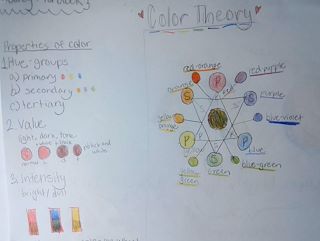 Color Theory
Properties of color
1. Hue-groups
a) primary
b) secondary
c) tertiary
2. Value
light, dark, tone
black and
white
3. Intensity
bright/dull
red-orange
red-purple
orange
red
purple
yellow
orange
blue-violet
blue
yellow
green
green
blue-green
P
S
S
P
P
S